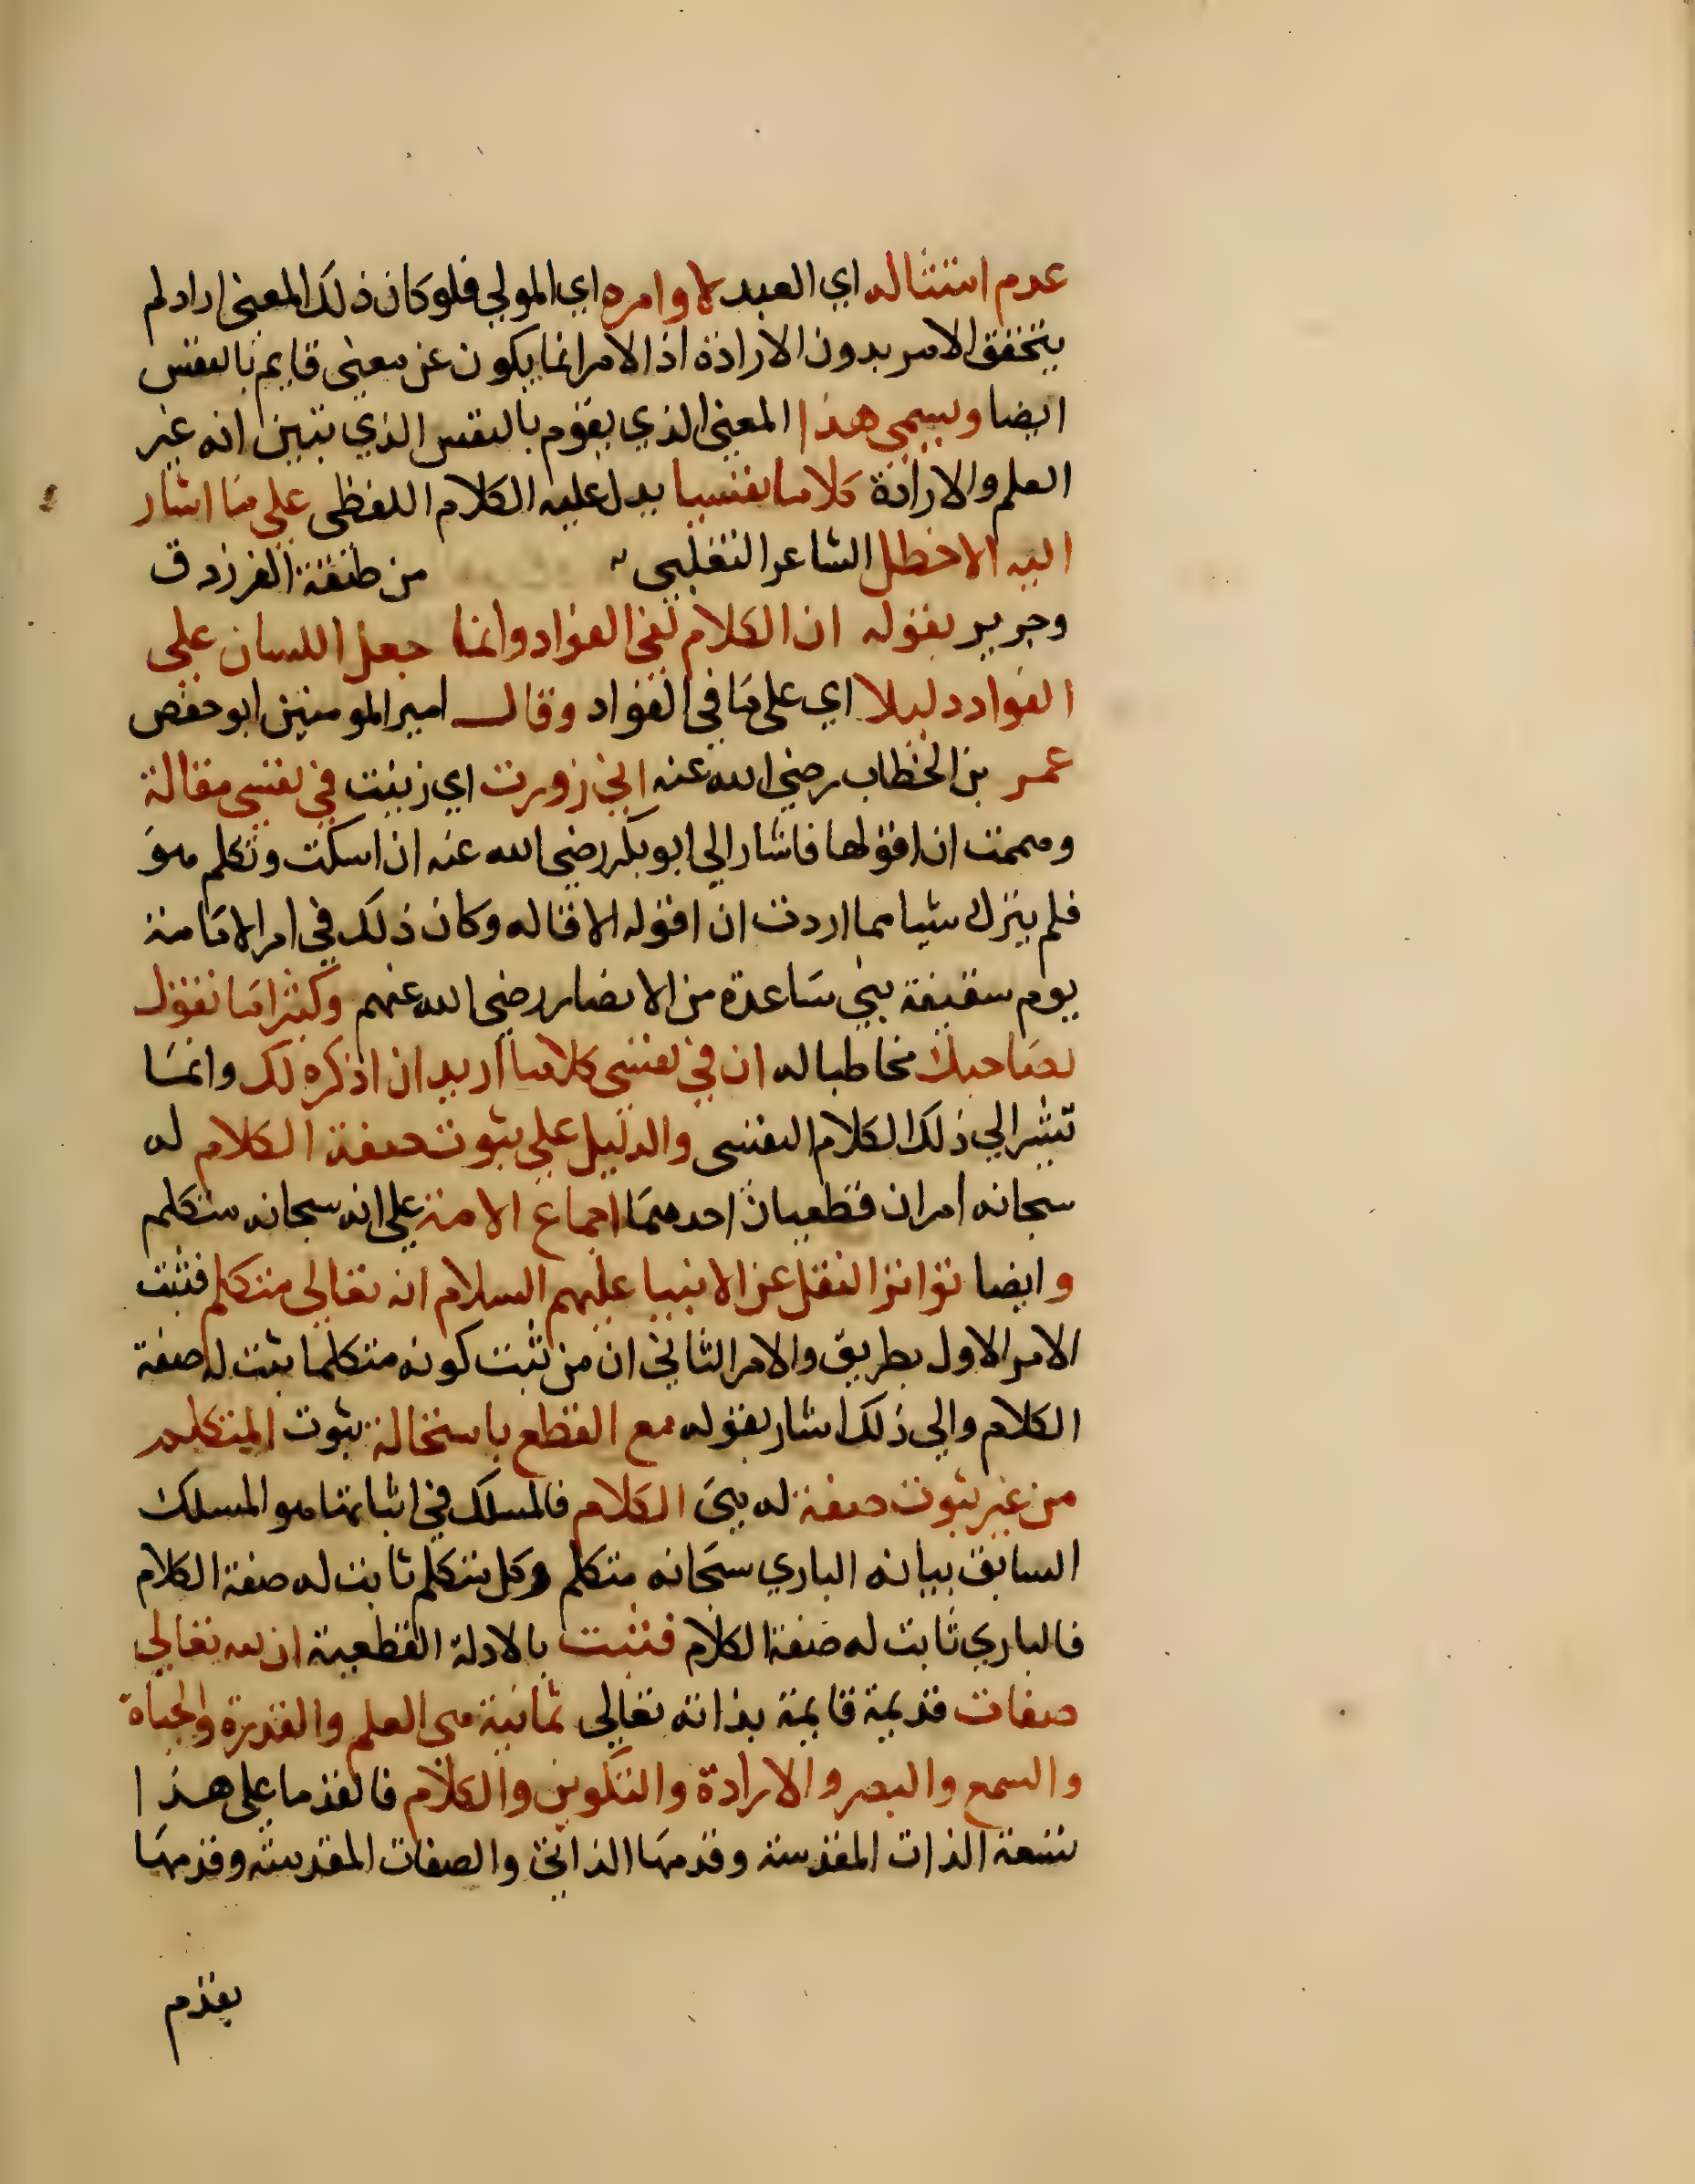 عدم امتثاله اي العبد لاوامره اي المولي فلو كان ذلك المعني اراد لم
يتحقق الامر بدون الارادة اذ الامر انما يكون عن معني قايم بالنفس
ايضا ويسمي هذا المعني الذي يقوم بالنفس الذي تبين انه غير
العلم والارادة كلاما نفسيا يدل عليه الكلام اللفظي علي ما اشار
اليه الاخطل الشاعر التغلبي من طبقة الفرزدق
وجرير بقوله ان الكلام لفي الفواد وانما جعل اللسان علي
الفواد دليلا اي علي ما في الفواد وقال امير المومنين ابو حفص
عمر بن الخطاب رضي الله عنه اني زورت اي زينت في نفسي مقالة
وهممت ان اقولها فاشار الي ابو بكر رضي الله عنه ان اسكت وتكلم هو
فلم يترك شيا مما اردت ان اقوله الا قاله وكان ذلك في امر الامامة
يوم سقيفة بني ساعدة من الانصار رضي الله عنهم وكثيرا ما تقول
لصاحبك مخاطبا له ان في نفسي كلاما اريد ان اذكره لك وانما
تشير الي ذلك الكلام النفسي والدليل علي ثبوت صفة الكلام له
سبحانه امران قطعيان احدهما اجماع الامة علي انه سبحانه متكلم
وايضا تواتر النقل عن الانبيا عليهم السلام انه تعالي متكلم فثبت
الامر الاول بطريق والامر الثاني ان من ثبت كونه متكلما ثبت له صفة
الكلام والي ذلك اشار بقوله مع القطع باستحالة ثبوت المتكلم
من غير ثبوت صفة له بيي الكلام فالمسلك في اثباتها هو المسلك
السابق بيانه الباري سبحانه متكلم وكل متكلم ثابت له صفة الكلام
فالباري ثابت له صفة الكلام فثبت بالادلة القطعية ان لله تعالي
صفات قديمة قايمة بذاته تعالي ثمانية هي العلم والقدرة والحياة
والسمع والبصر والارادة والتكوين والكلام فالقدما علي هذا
تسعة الذات المقدسة وقدمها الذاتي والصفات المقدسة وقدمها
بقدم